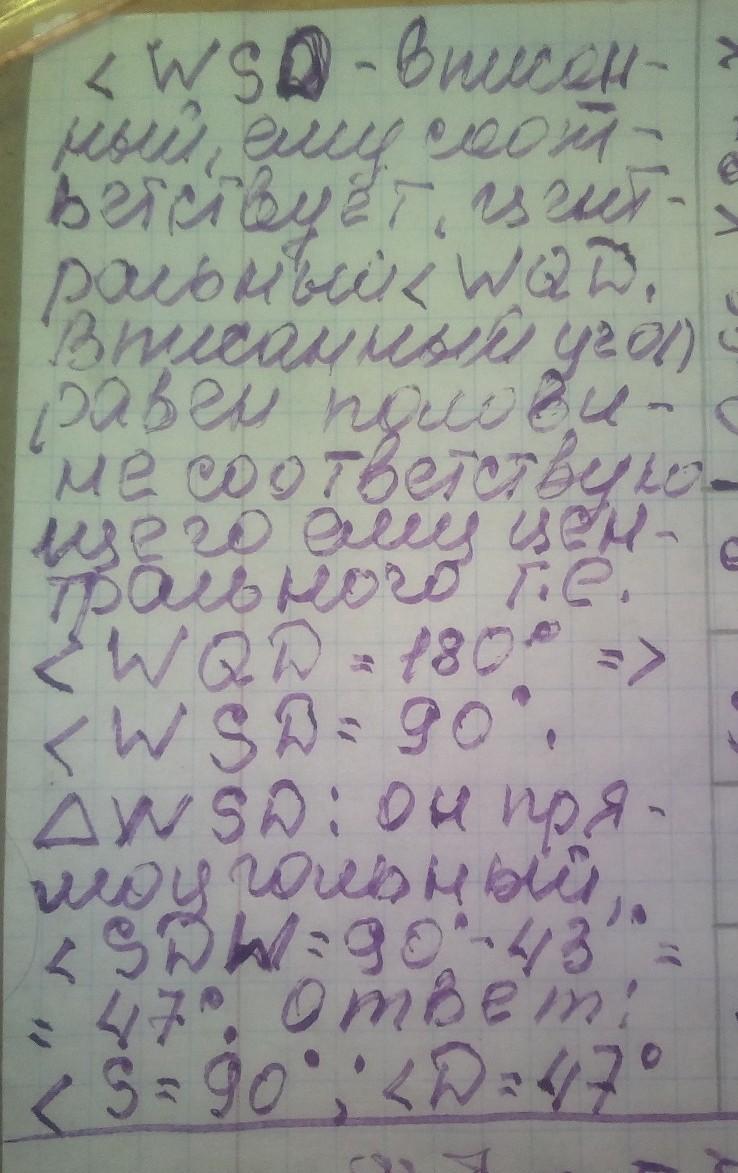 < WSD - вписан-
ный, ему соот-
ветствует, цент-
ральный < WQD.
Вписанный угол
равен полови-
не соответствую
щего ему цен-
трального т.е.
< WQD = 180° =>
< WSD = 90°.
△WSD: он пря-
моугольный,
< SDW = 90° - 43° =
= 47°. Ответ:
< S = 90°; < D = 47°